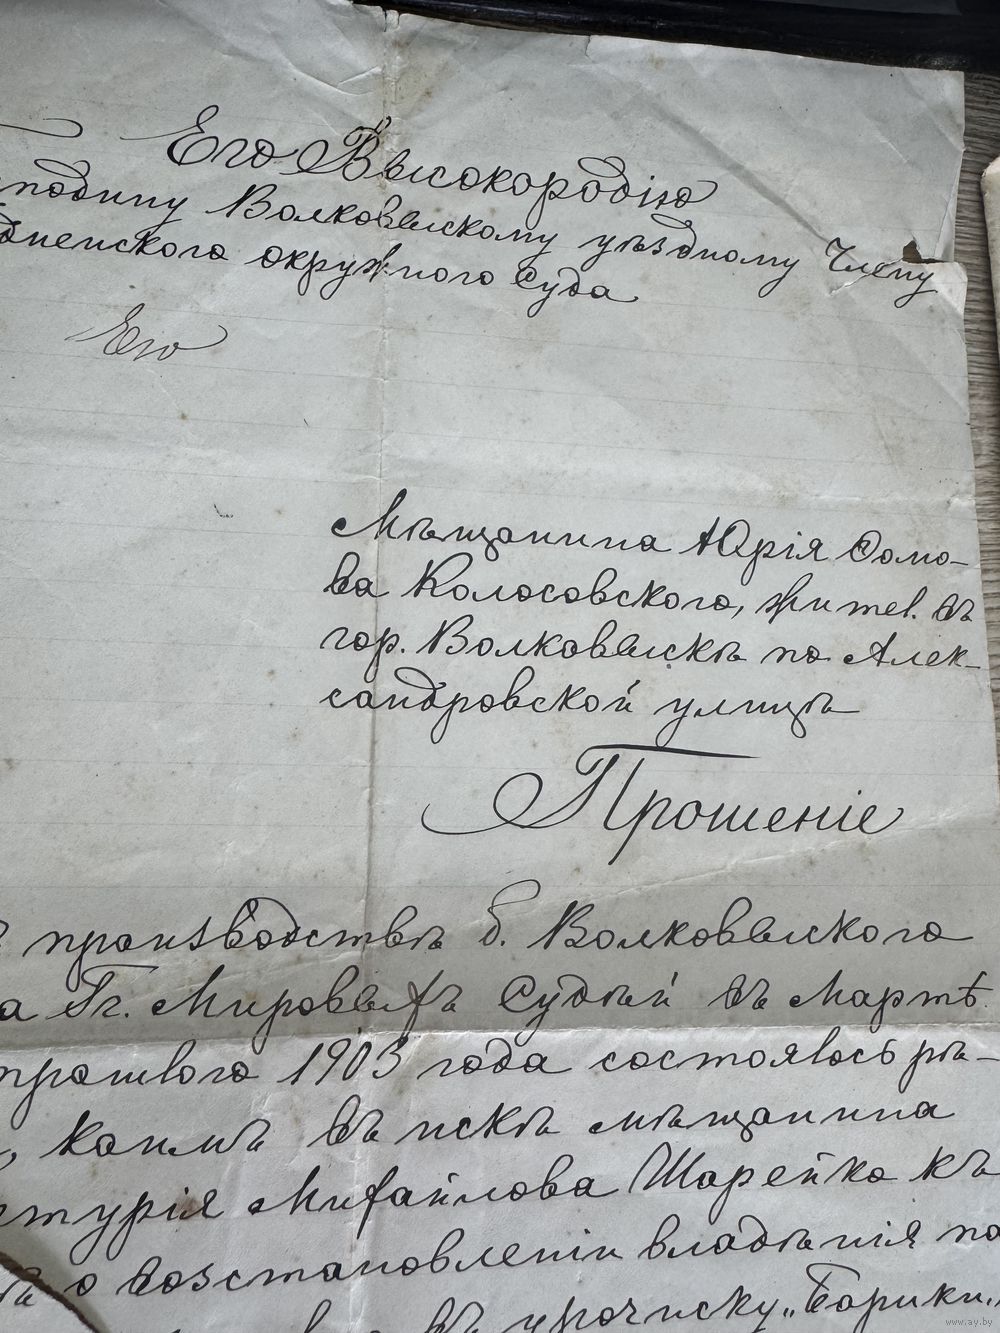 Его Высокородію
сподину Волковыскому уѣздному Члену
дненского окружного Суда
Его
Мѣщанина Юрія Сомо-
ва Колосовского, жител. въ
гор. Волковыскѣ по Алек-
сандровской улицѣ
Прошеніе
производствѣ б. Волковыского
а Гг. Мировыхъ Судьей въ Мартѣ
прошлого 1903 года состоялось рѣ-
, коимъ въ искѣ мѣщанина
Михайлова Шарейко къ
о возстановленіи владѣнія по
въ урочиску „Борики"
www.ay.by